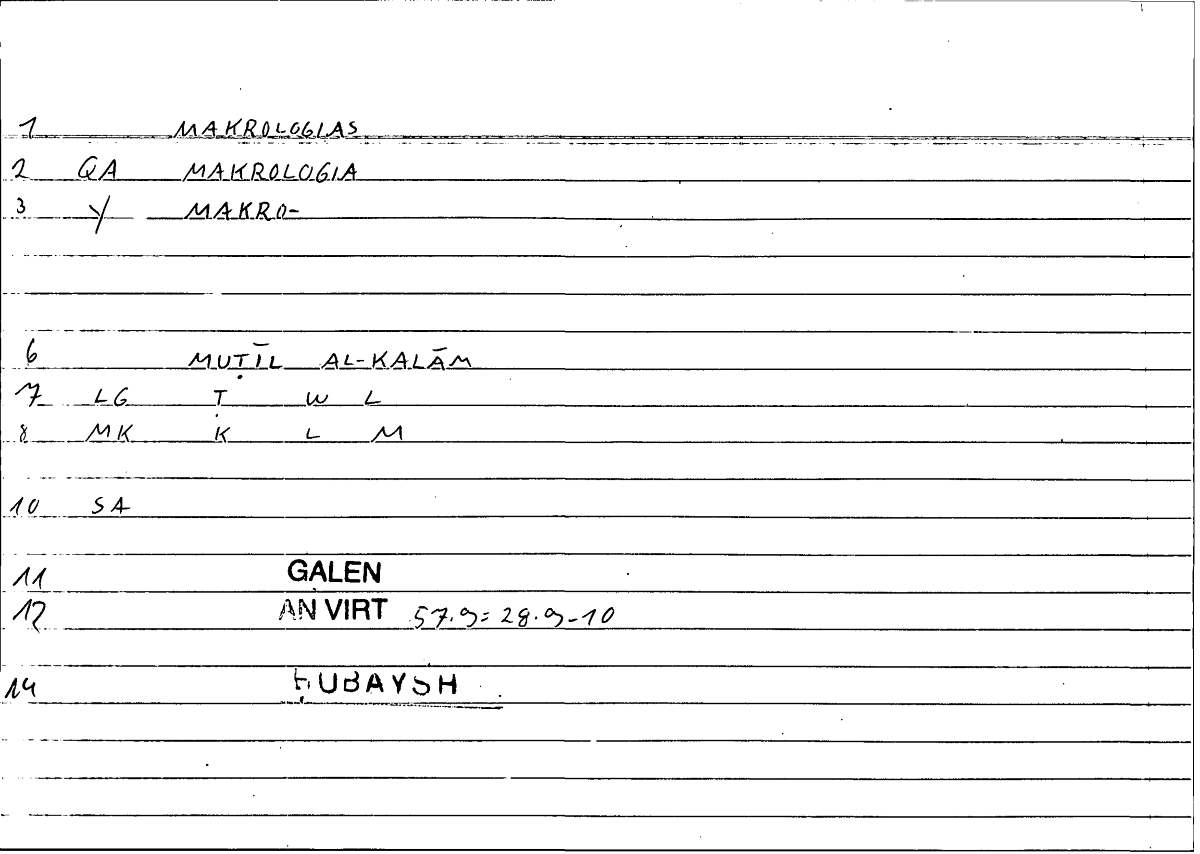 1 MAKROLOGIAS
2 QA MAKROLOGIA
3 Y MAKRO-
6 MUṬĪL AL-KALĀM
7 LG Ṭ W L
8 MK K L M
10 SA
11 GALEN
12 AN VIRT 57.9= 28.9-10
14 ḤUBAYSH